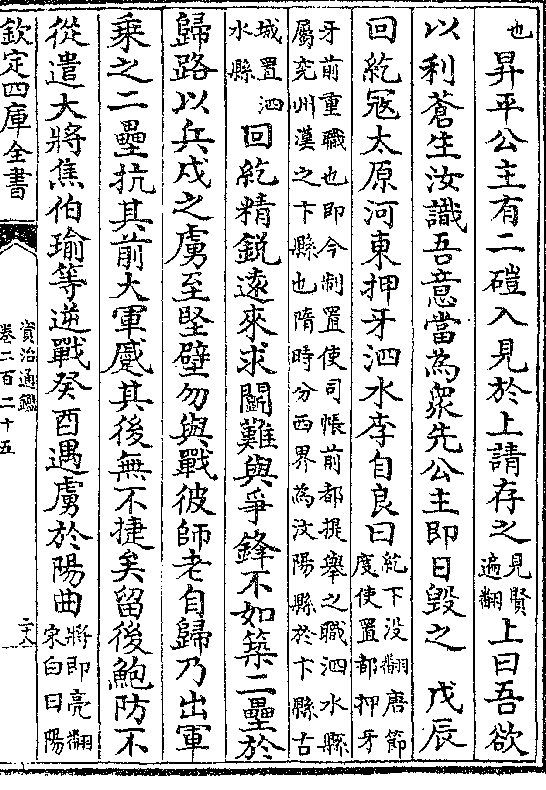 也昇平公主有二磑入見於上請存之見賢遍翻上曰吾欲
以利蒼生汝識吾意當為衆先公主即日毁之　戊辰
回紇冦太原河東押牙泗水李自良曰紇下没翻唐節度使置都押牙
牙前重職也即今制置使司帳前都提舉之職泗水縣
屬兖州漢之卞縣也隋時分西界為汶陽縣於卞縣古
城置泗水縣回紇精鋭遠來求鬭難與爭鋒不如築二壘於
歸路以兵戍之虜至堅壁勿與戰彼師老自歸乃出軍
乘之二壘抗其前大軍蹙其後無不捷矣留後鮑防不
從遣大將焦伯瑜等逆戰癸酉遇虜於陽曲將即亮翻宋白曰陽
欽定四庫全書
資治通鑑
卷二百二十五